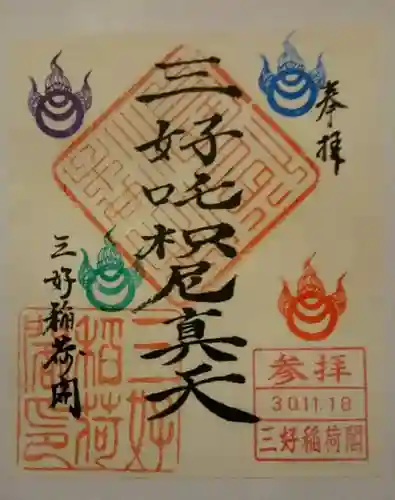 奉拝
三好吒枳尼真天
三好稲荷閣
参拝
30.11.18
三好稲荷閣
三好
稲荷